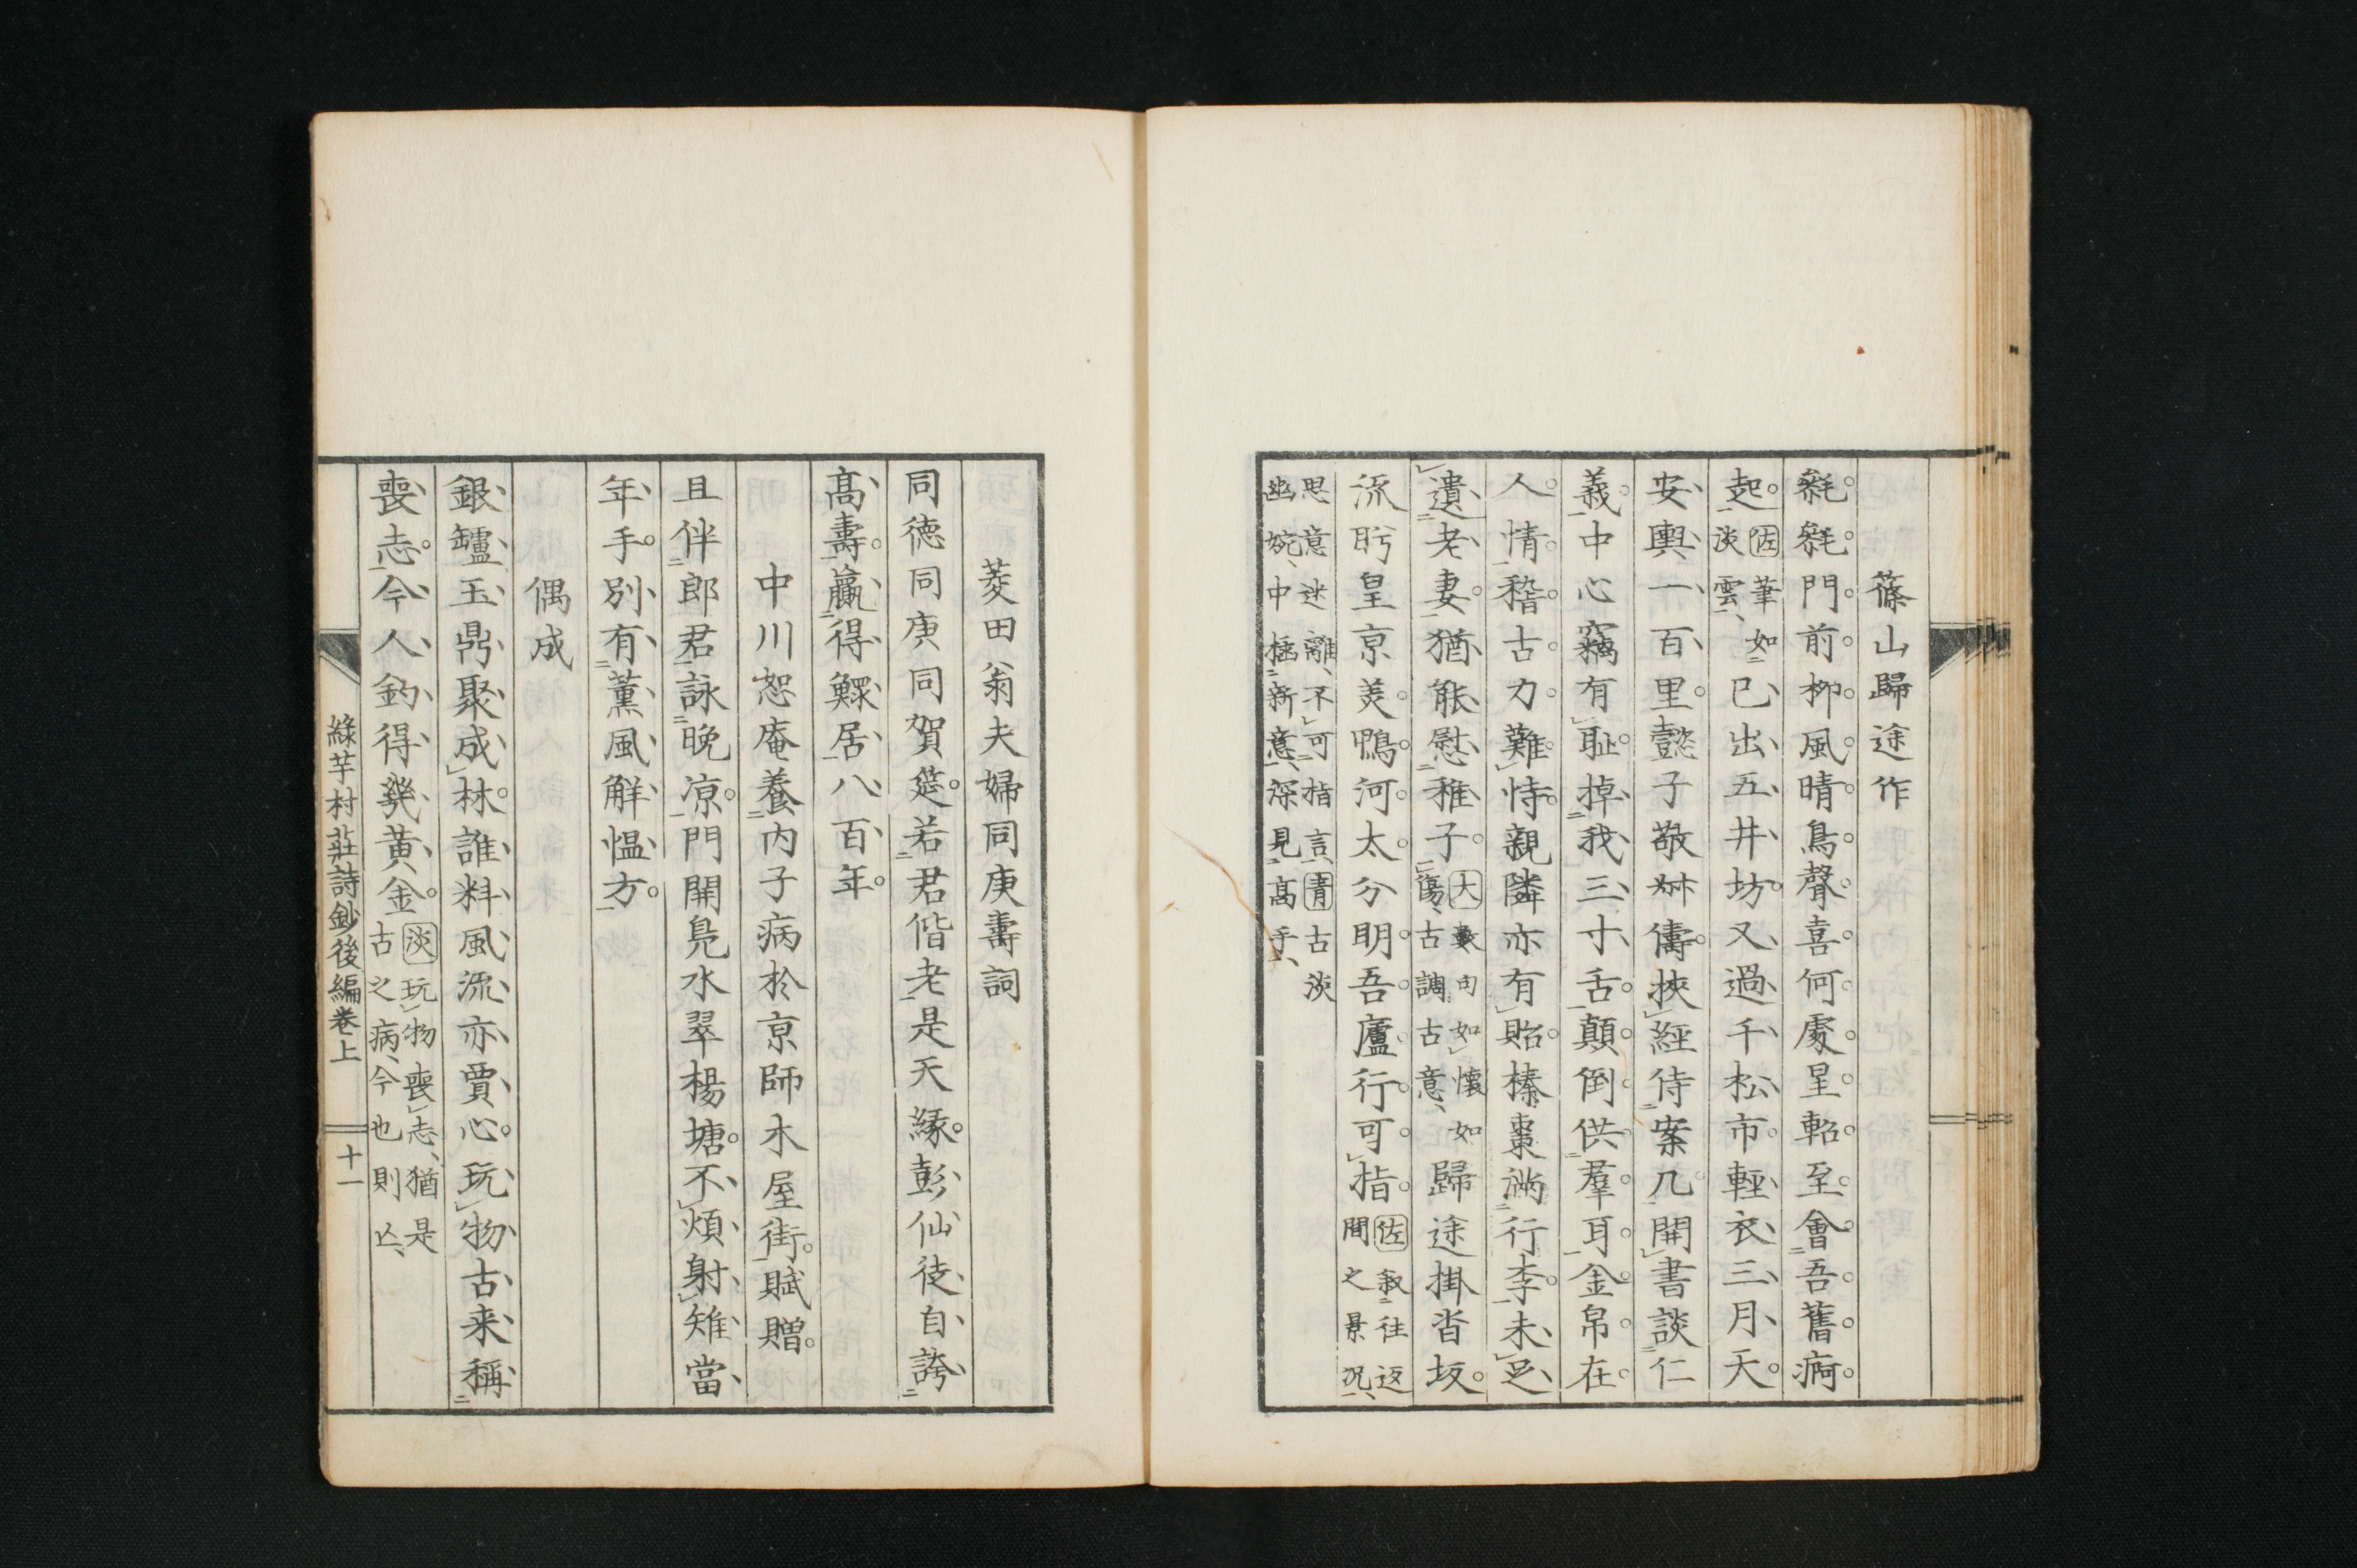 篠山歸途作
毿毿門前柳風晴鳥聲喜何處星軺至會吾舊痾
起佐筆如
淡雲、已出五井坊又過千松市輕衣三月天
安輿一百里懿子敬叔儔挾經侍案几開書談仁
義中心竊有耻掉我三寸舌顛倒供羣耳金帛在
人情稽古力難恃親隣亦有貽榛棗滿行李未足
遺老妻猶能慰稚子大數句如懷
傷、古調古意、如歸途掛沓坂
流眄皇京美鴨河太分明吾廬行可指佐敘往返
間之景况、
思意迷離、不可指言、青古淡
幽婉、中極新意、深見高手、
菱田翁夫婦同庚壽詞
同德同庚同賀筵若君偕老是天緣彭仙徒自誇
高壽贏得鰥居八百年
中川恕庵養内子病於京師木屋街賦贈
且伴郎君詠晚凉門開鳧水翠楊塘不煩射雉當
年手別有薰風解慍方
偶成
銀罏玉鼎聚成林誰料風流亦賈心玩物古来稱
喪志今人釣得幾黃金淡玩物喪志、猶是
古之病、今也則亾、
綠芋村莊詩鈔後編卷上
十一